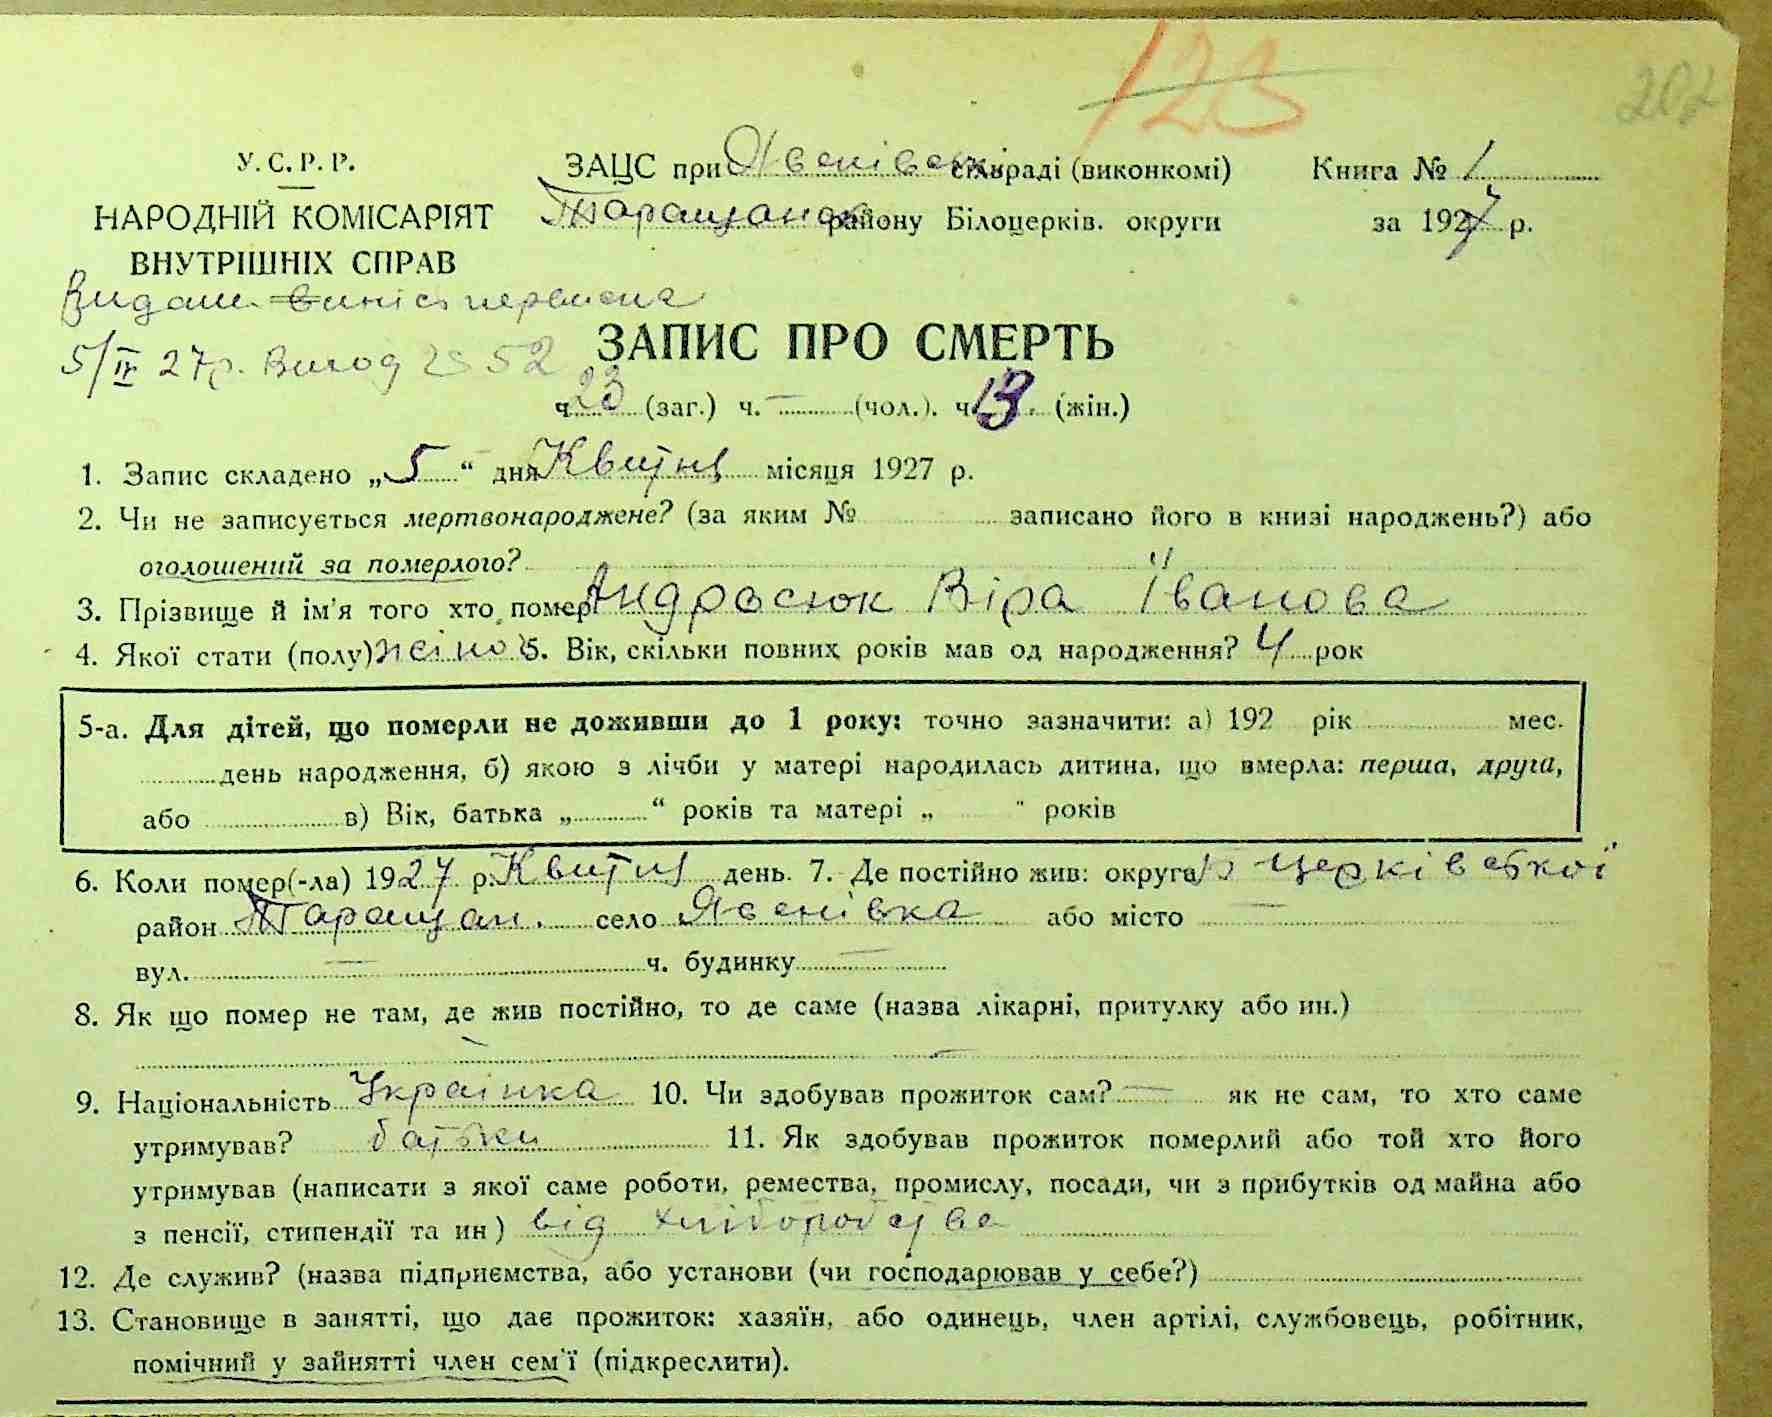 123
202
У.С.Р.Р.
НАРОДНІЙ КОМІСАРІЯТ
ВНУТРІШНІХ СПРАВ
ЗАЦС при Ясенівськ. сільраді (виконкомі)
Таращанськ району Білоцерків. округи
Книга № 1
за 1927 р.
Видано
5/IV 27р. Виход 2352
ЗАПИС ПРО СМЕРТЬ
ч. 23 (заг.) ч. — (чол.). ч. 13. (жін.)
1. Запис складено „5“ дня Квітня місяця 1927 р.
2. Чи не записується мертвонароджене? (за яким № записано його в книзі народжень?) або
оголошений за померлого?
3. Прізвище й ім'я того хто помер Андросюк Віра Їванова
4. Якої стати (полу) жіно 5. Вік, скільки повних років мав од народження? 4 рок
5-а. Для дітей, що померли не доживши до 1 року: точно зазначити: а) 192 рік мес.
день народження, б) якою з лічби у матері народилась дитина, що вмерла: перша, друга,
або в) Вік, батька „ “ років та матері „ " років
6. Коли помер(-ла) 1927 р. Квітня день. 7. Де постійно жив: округа Б Церківської
район Таращан. село Ясенівка або місто —
вул. — ч. будинку —
8. Як що помер не там, де жив постійно, то де саме (назва лікарні, притулку або ин.)
9. Національність Українка 10. Чи здобував прожиток сам? — як не сам, то хто саме
утримував? батьки 11. Як здобував прожиток померлий або той хто його
утримував (написати з якої саме роботи, ремества, промислу, посади, чи з прибутків од майна або
з пенсії, стипендії та ин) від хліборобства
12. Де служив? (назва підприємства, або установи (чи господарював у себе?)
13. Становище в занятті, що дає прожиток: хазяїн, або одинець, член артілі, службовець, робітник,
помічний у зайнятті член сем'ї (підкреслити).